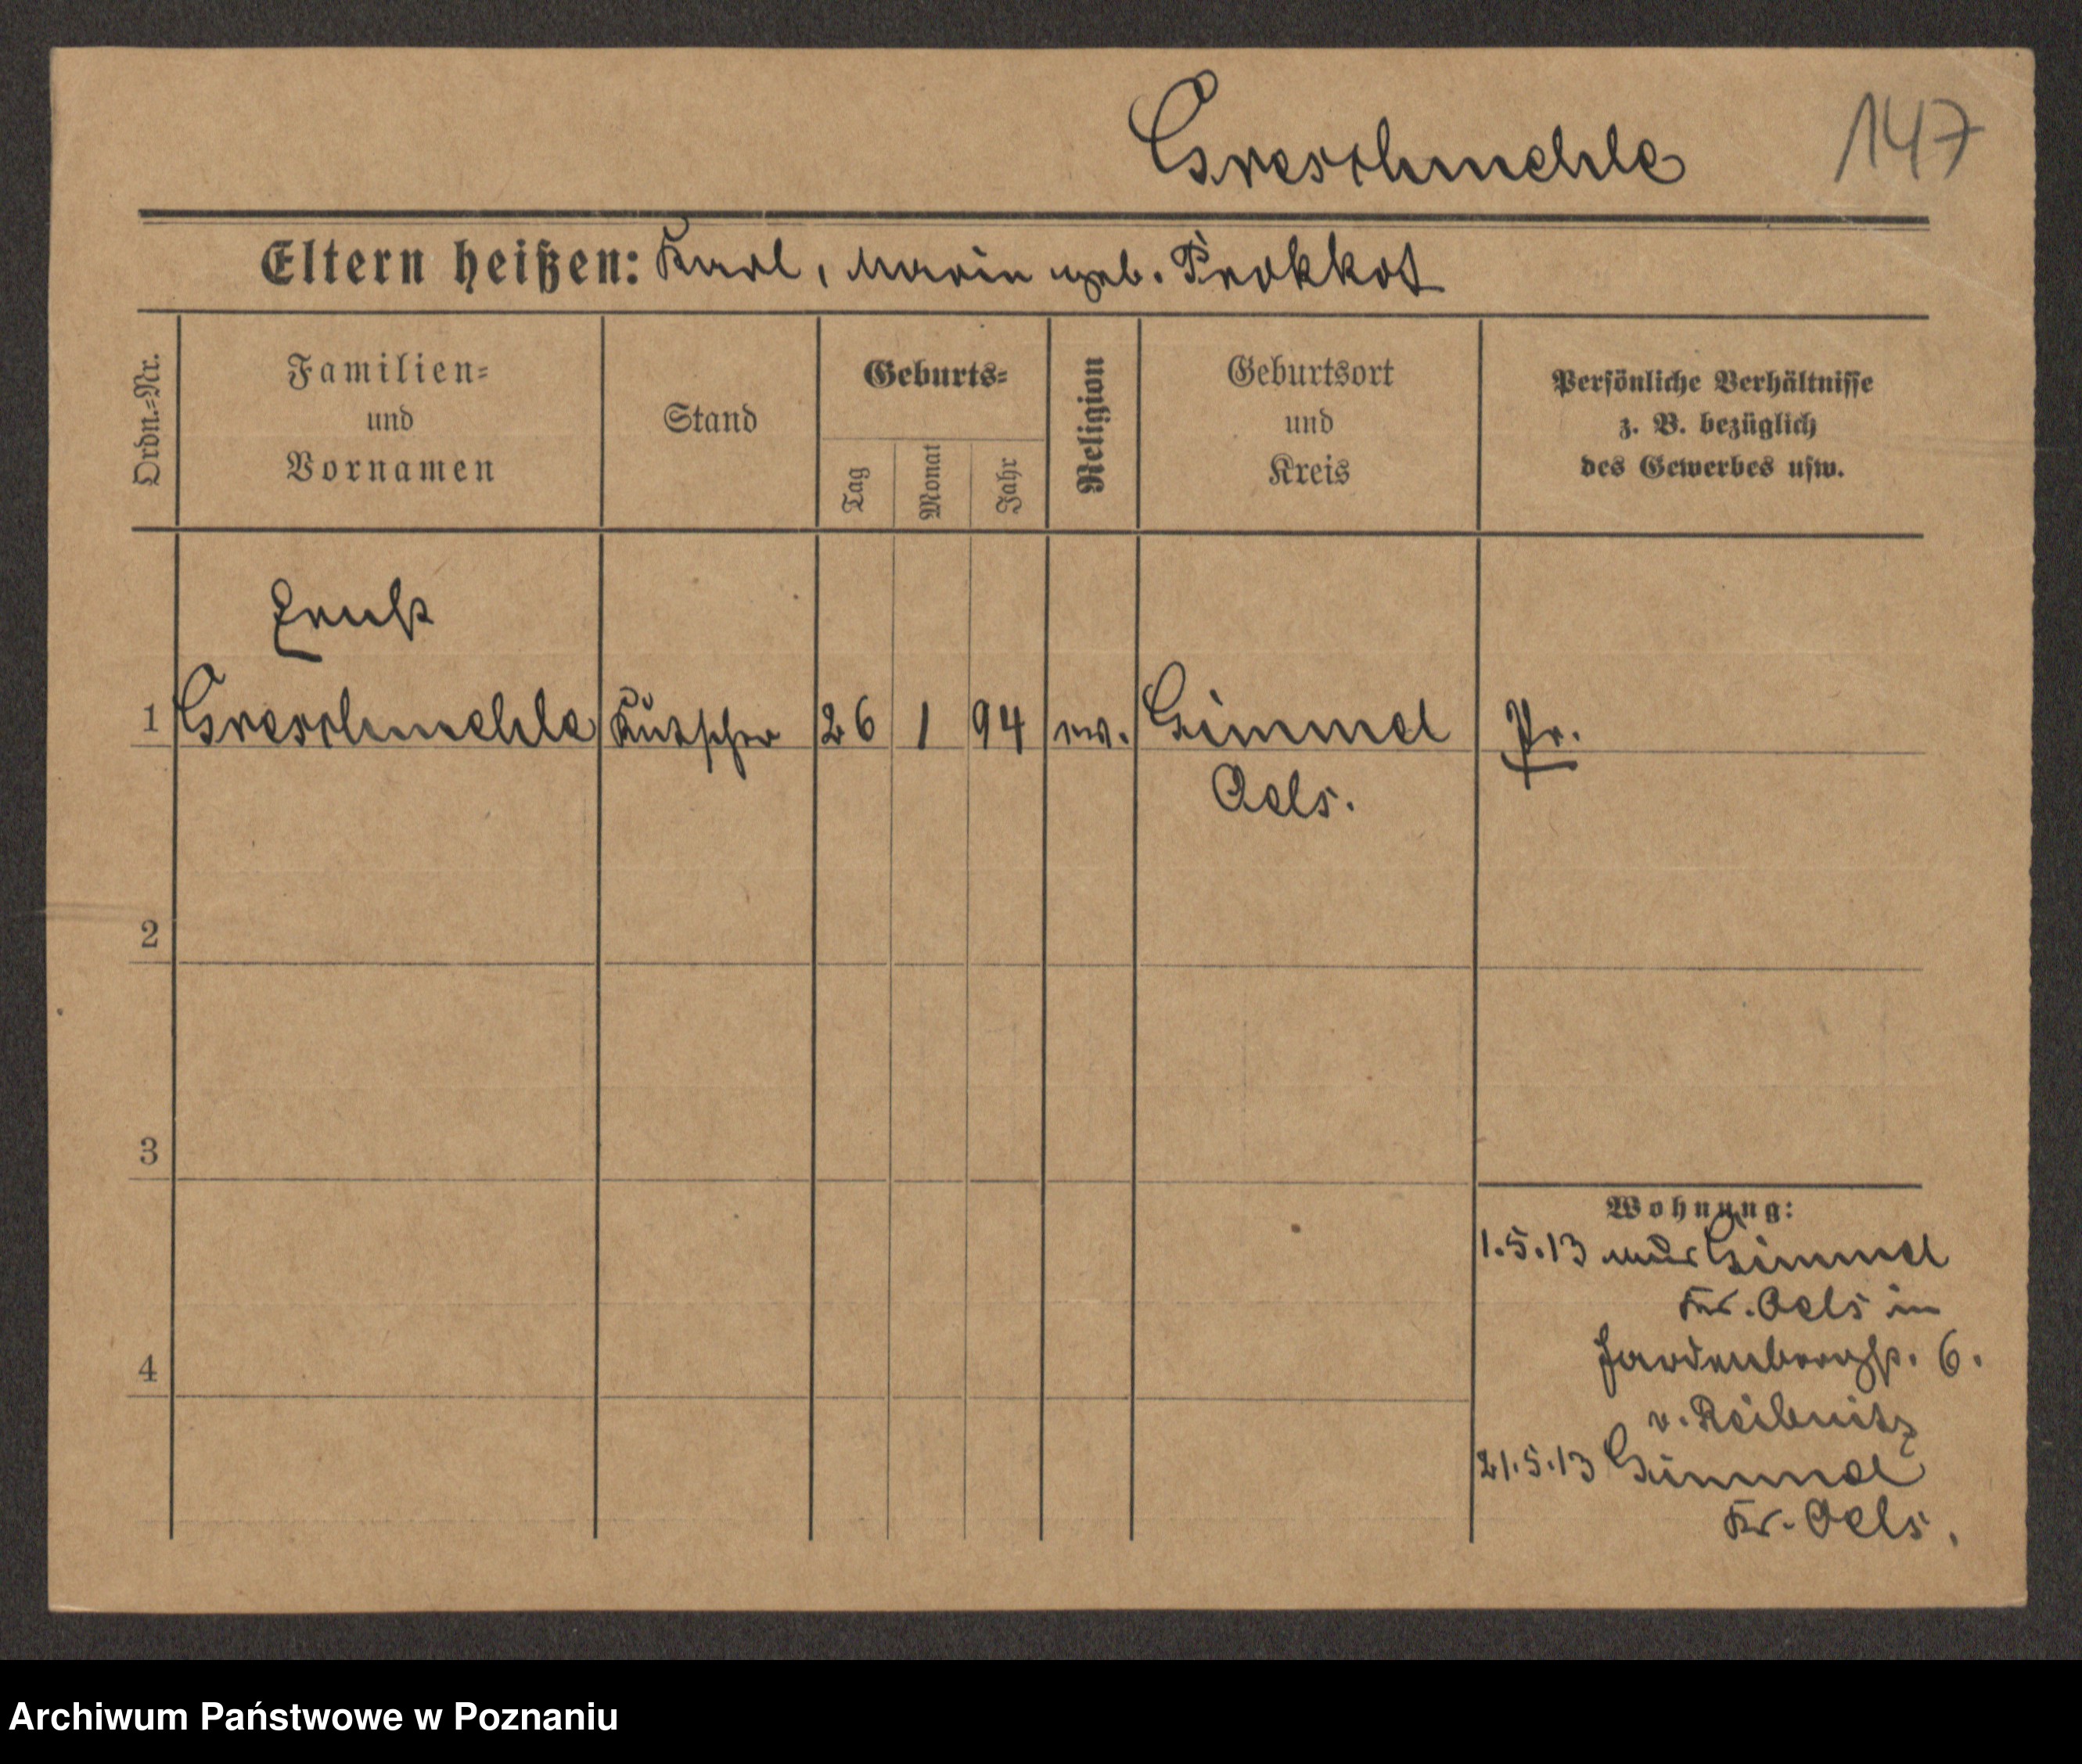 Greschmehle 147
Eltern heißen: Karl, Marie geb. Prokkot
Ordn.=Nr.
Familien=
und
Vornamen
Stand
Geburts=
Tag
Monat
Jahr
Religion
Geburtsort
und
Kreis
Persönliche Verhältnisse
z. B. bezüglich
des Gewerbes usw.
Ernst
1 Greschmehle Kutscher 26 1 94 ev. Gimmel Pr.
Oels.
2
3
4
Wohnung:
1.5.13 aus Gimmel
Kr. Oels in
Hardenbergstr. 6.
v. Reibnitz
21.5.13 Gimmel
Kr. Oels.
Archiwum Państwowe w Poznaniu